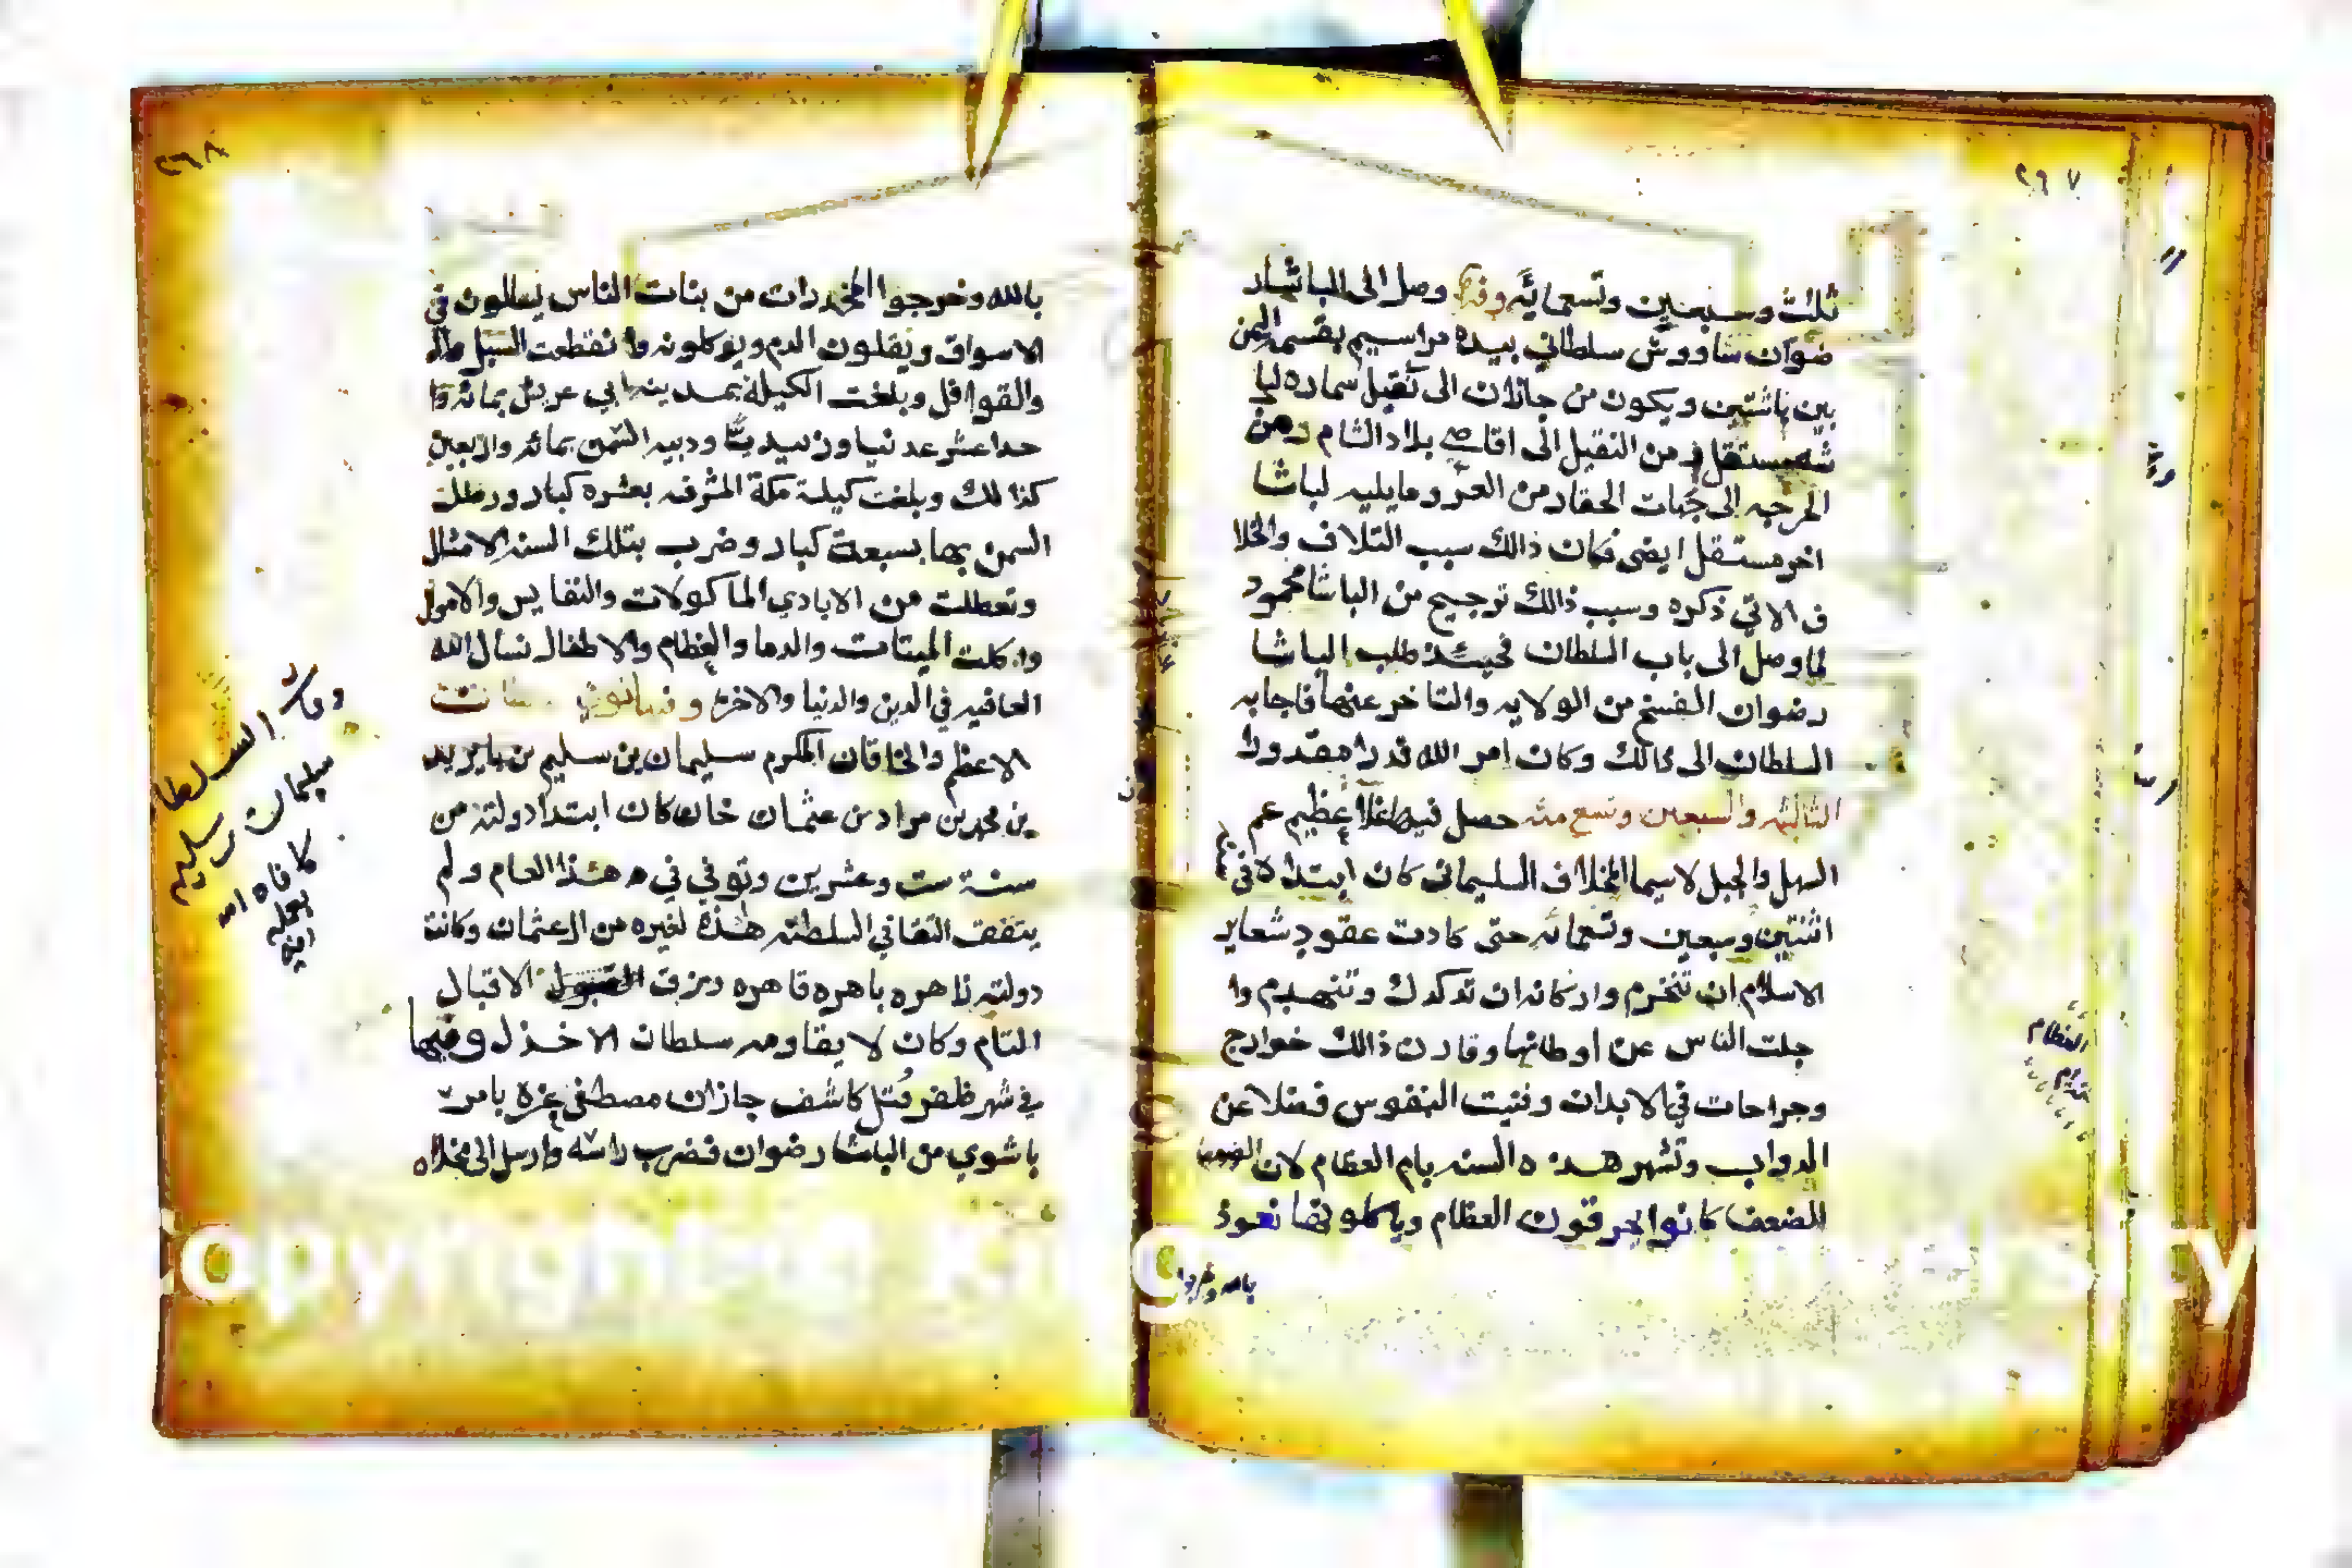 ٢٦٧
ثلث وسبعين وتسعمائه وفيها وصل الى الباشا ر
ضوان شاووش سلطاني بيده مراسيم بقسم اليمن
بين باشتين ويكون من جازان الى نقيل سماره لبا
شه مستقل ومن النقيل الى اقاصي بلاد الشام ومن
الى جهات الحقار من العر وما يليه لباشا
اخر مستقل ايضى فكان ذالك سبب التلاف والخلا
ف الاتي ذكره وسبب ذالك ترجيح من الباشا محمود
لما وصل الى باب السلطان فحيئذ طلب الباشا
رضوان الفسخ من الولايه والتاخر عنها فاجابه
السلطان الى ذالك وكان امر الله قدرا مقدورا
الثالثه والسبعين وتسع مئه حصل فيها غلا عظيم عم
السهل والجبل لاسيما المخلاف السليماني كان ابتداه في
اثنتين وسبعين وتسعمائه حتى كادت عقود شعاير
الاسلام ان تنخرم واركانه ان تدكدك وتنهدم وا
جلت الناس عن اوطانها وقارن ذالك خوارج
وجراحات في الابدان وفنيت النفوس فضلا عن
الدواب وتشهر هذه السنه بام العظام لان
الضعفا كانوا يحرقون العظام وياكلونها نعوذ
بالله وخرجوا
العظام
٢٦٨
بالله وخرجوا المخدرات من بنات الناس يسالون في
الاسواق ويقلون الدم ويوكلونه وانقطعت السبل
والقوافل وبلغت الكيلة بمدينه ابي عريش بمائه وا
حدا عشر عدنيا وزبيديا ودبيه السمن بمائه واربعين
كذالك وبلغت كيلة مكة المشرفه بعشره كبار ورطل
السمن بها بسبعة كبار وضرب بتلك السنه الامثال
وتعطلت من الايادي الماكولات والنفايس والاموال
واكلت الميتات والدما والعظام والاطفال نسال الله
العافيه في الدين والدنيا والاخرة وفيها توفي
الاعظم والخاقان المكرم سليمان بن سليم بن بايزيد
بن محمد بن مراد بن عثمان خان كان ابتدا دولته من
سنة ست وعشرين وتوفي في هذا العام ولم
يتفق التقا في السلطنه هذه لغيره من ال عثمان وكانت
دولته زاهره باهره قاهره ورزق الاقبال
التام وكان لا يقاومه سلطان الا خذل وفيها
في شهر ظفر قتل كاشف جازان مصطفى غزه بامر
باشوي من الباشا رضوان فضرب راسه وارسل الى
وفات السلطا
سليمان بن سليم
كافاه الله
بعمله
امين